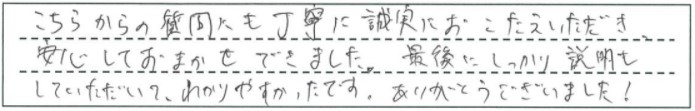 こちらからの質問にも丁寧に誠実におこたえいただき、
安心しておまかせできました。最後にしっかり説明も
していただいて、わかりやすかったです。ありがとうございました！